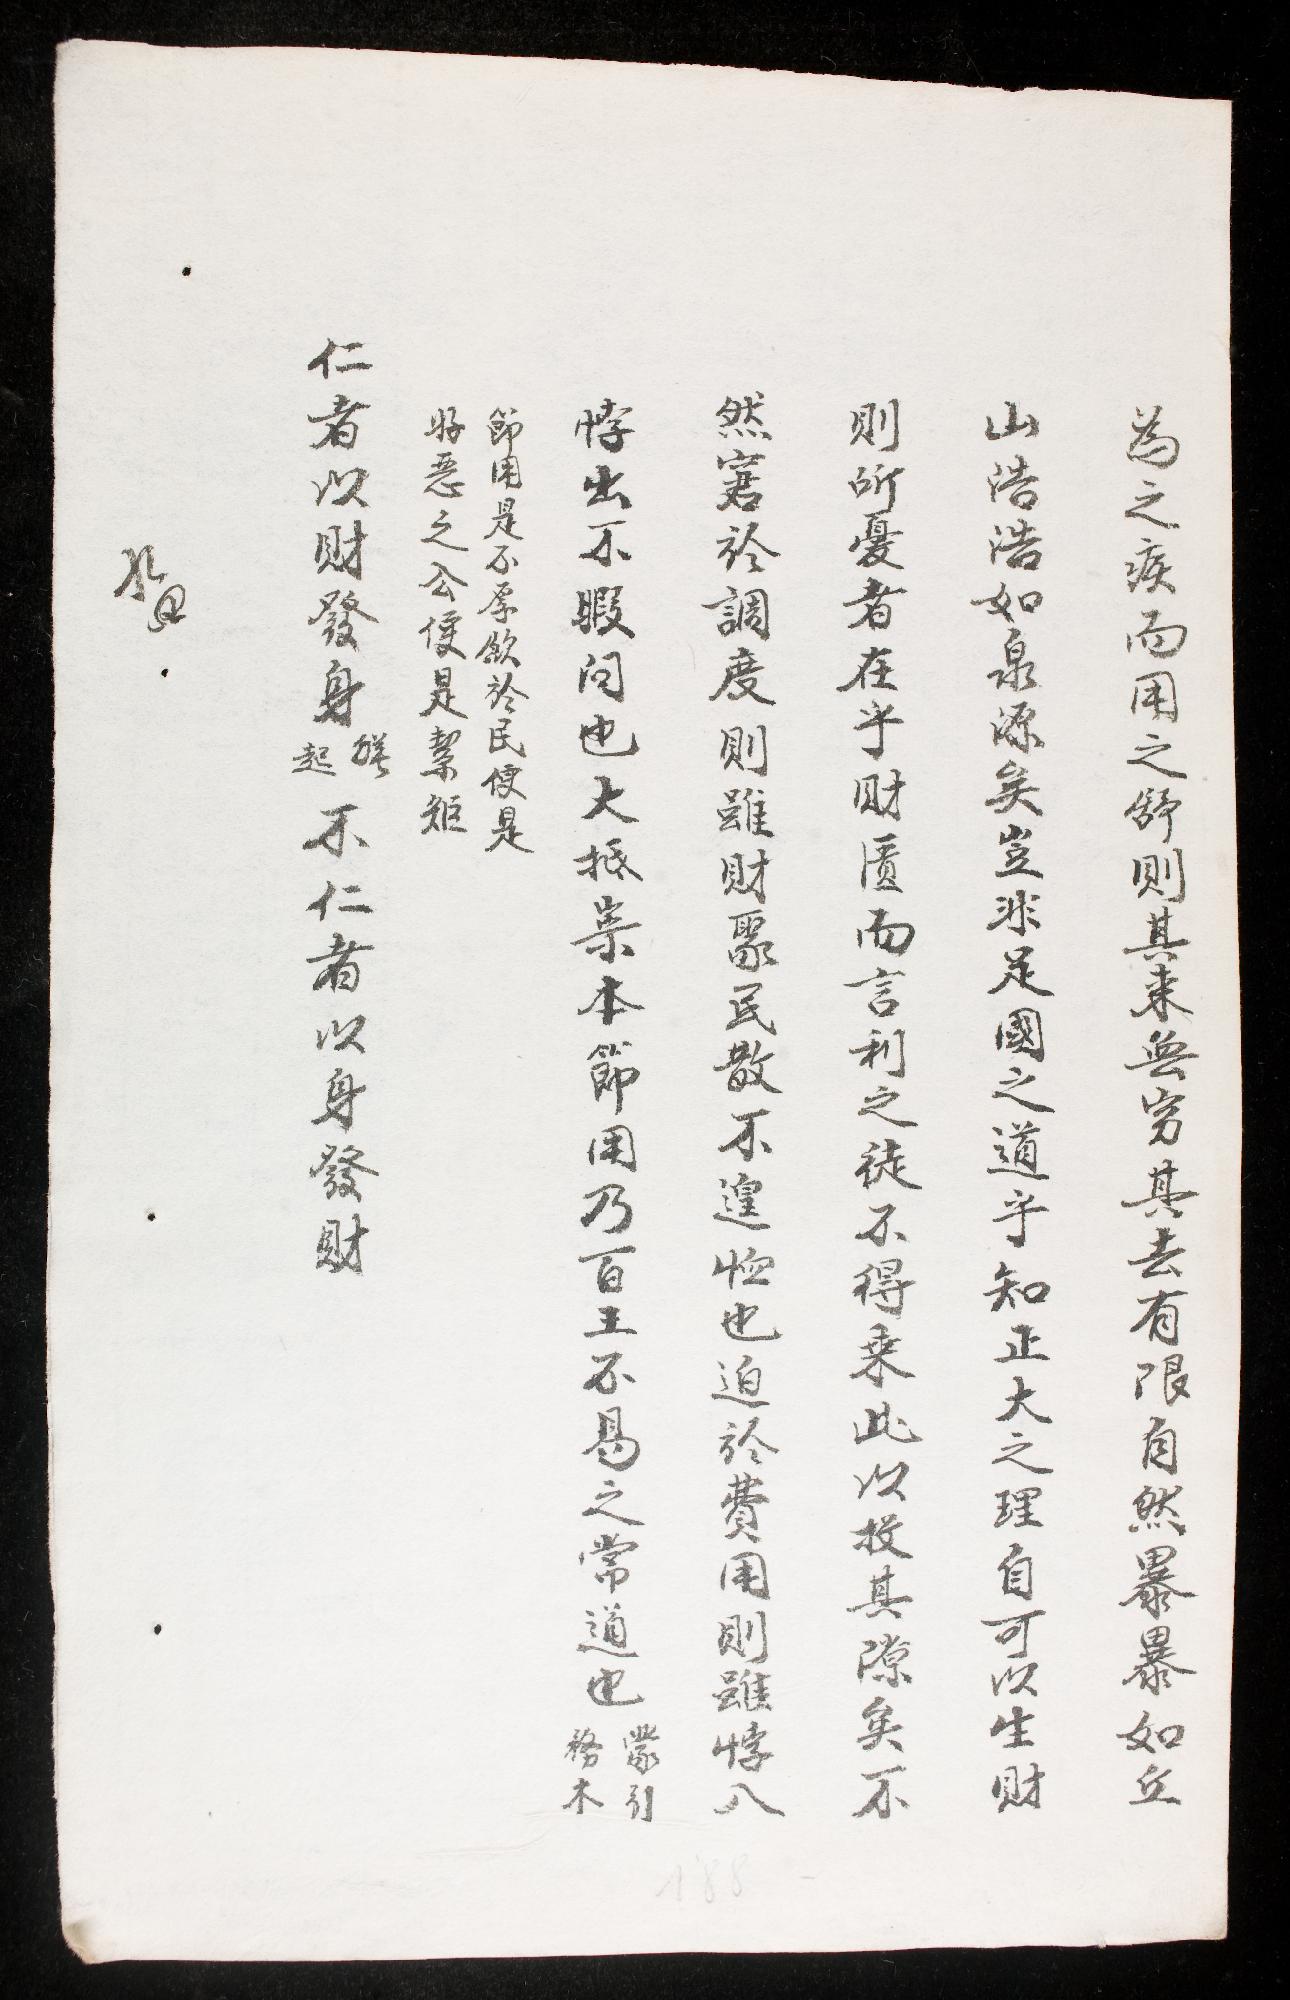 為之疾而用之舒則其来無穷其去有限自然暴暴如丘
山浩浩如泉源矣豈非足國之道乎知正大之理自可以生財
則所憂者在乎財匱而言利之徒不得乗此以投其隙矣不
然窘於調度則雖財聚民散不遑恤也迫於費用則雖悖入
悖出不暇问也大抵崇本節用乃百王不易之常道也
蒙引
務本
節用是不厚歛於民便是
好惡之公便是絜矩
仁者以財發身
起
不仁者以身發財
188